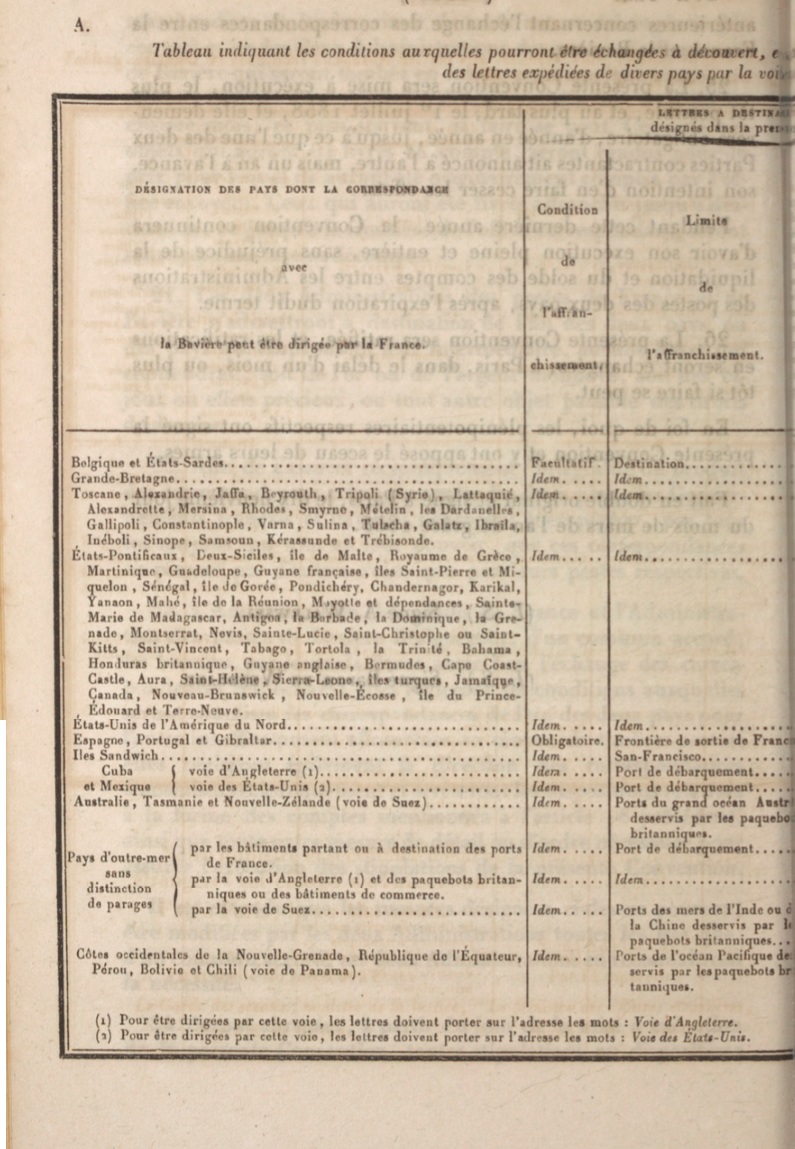 A.
Tableau indiquant les conditions auxquelles pourront être échangées à découvert, e
des lettres expédiées de divers pays par la voie
LETTRES A DESTINA
désignés dans la pre
DÉSIGNATION DES PAYS DONT LA CORRESPONDANCE
avec
la Bavière peut être dirigée par la France.
Condition
de
l'affran-
chissement.
Limite
de
l'affranchissement.
Belgique et États-Sardes........ Facultatif. Destination........
Grande-Bretagne........ Idem..... Idem........
Toscane, Alexandrie, Jaffa, Beyrouth, Tripoli (Syrie), Lattaquié, Idem..... Idem........
Alexandrette, Mersina, Rhodes, Smyrne, Mételin, les Dardanelles,
Gallipoli, Constantinople, Varna, Sulina, Tulscha, Galatz, Ibraïla,
Inéboli, Sinope, Samsoun, Kérassunde et Trébisonde.
États-Pontificaux, Deux-Siciles, île de Malte, Royaume de Grèce, Idem..... Idem........
Martinique, Guadeloupe, Guyane française, îles Saint-Pierre et Mi-
quelon, Sénégal, île de Gorée, Pondichéry, Chandernagor, Karikal,
Yanaon, Mahé, île de la Réunion, Mayotte et dépendances, Sainte-
Marie de Madagascar, Antigoa, la Barbade, la Dominique, la Gre-
nade, Montserrat, Nevis, Sainte-Lucie, Saint-Christophe ou Saint-
Kitts, Saint-Vincent, Tabago, Tortola, la Trinité, Bahama,
Honduras britannique, Guyane anglaise, Bermudes, Cape Coast-
Castle, Aura, Saint-Hélène, Sierra-Leone, îles turques, Jamaïque,
Canada, Nouveau-Brunswick, Nouvelle-Écosse, île du Prince-
Édouard et Terre-Neuve.
États-Unis de l'Amérique du Nord........ Idem..... Idem........
Espagne, Portugal et Gibraltar........ Obligatoire. Frontière de sortie de Franc
Iles Sandwich........ Idem..... San-Francisco........
Cuba et Mexique { voie d'Angleterre (1)........ Idem..... Port de débarquement.....
voie des États-Unis (2)........ Idem..... Port de débarquement.....
Australie, Tasmanie et Nouvelle-Zélande (voie de Suez)........ Idem..... Ports du grand océan Austr
desservis par les paquebo
britanniques.
Pays d'outre-mer sans distinction de parages { par les bâtiments partant ou à destination des ports Idem..... Port de débarquement.....
de France.
par la voie d'Angleterre (1) et des paquebots britan- Idem..... Idem........
niques ou des bâtiments de commerce.
par la voie de Suez........ Idem..... Ports des mers de l'Inde ou d
la Chine desservis par l
paquebots britanniques...
Côtes occidentales de la Nouvelle-Grenade, République de l'Équateur, Idem..... Ports de l'océan Pacifique de
Pérou, Bolivie et Chili (voie de Panama). servis par les paquebots br
tanniques.
(1) Pour être dirigées par cette voie, les lettres doivent porter sur l'adresse les mots : Voie d'Angleterre.
(2) Pour être dirigées par cette voie, les lettres doivent porter sur l'adresse les mots : Voie des États-Unis.